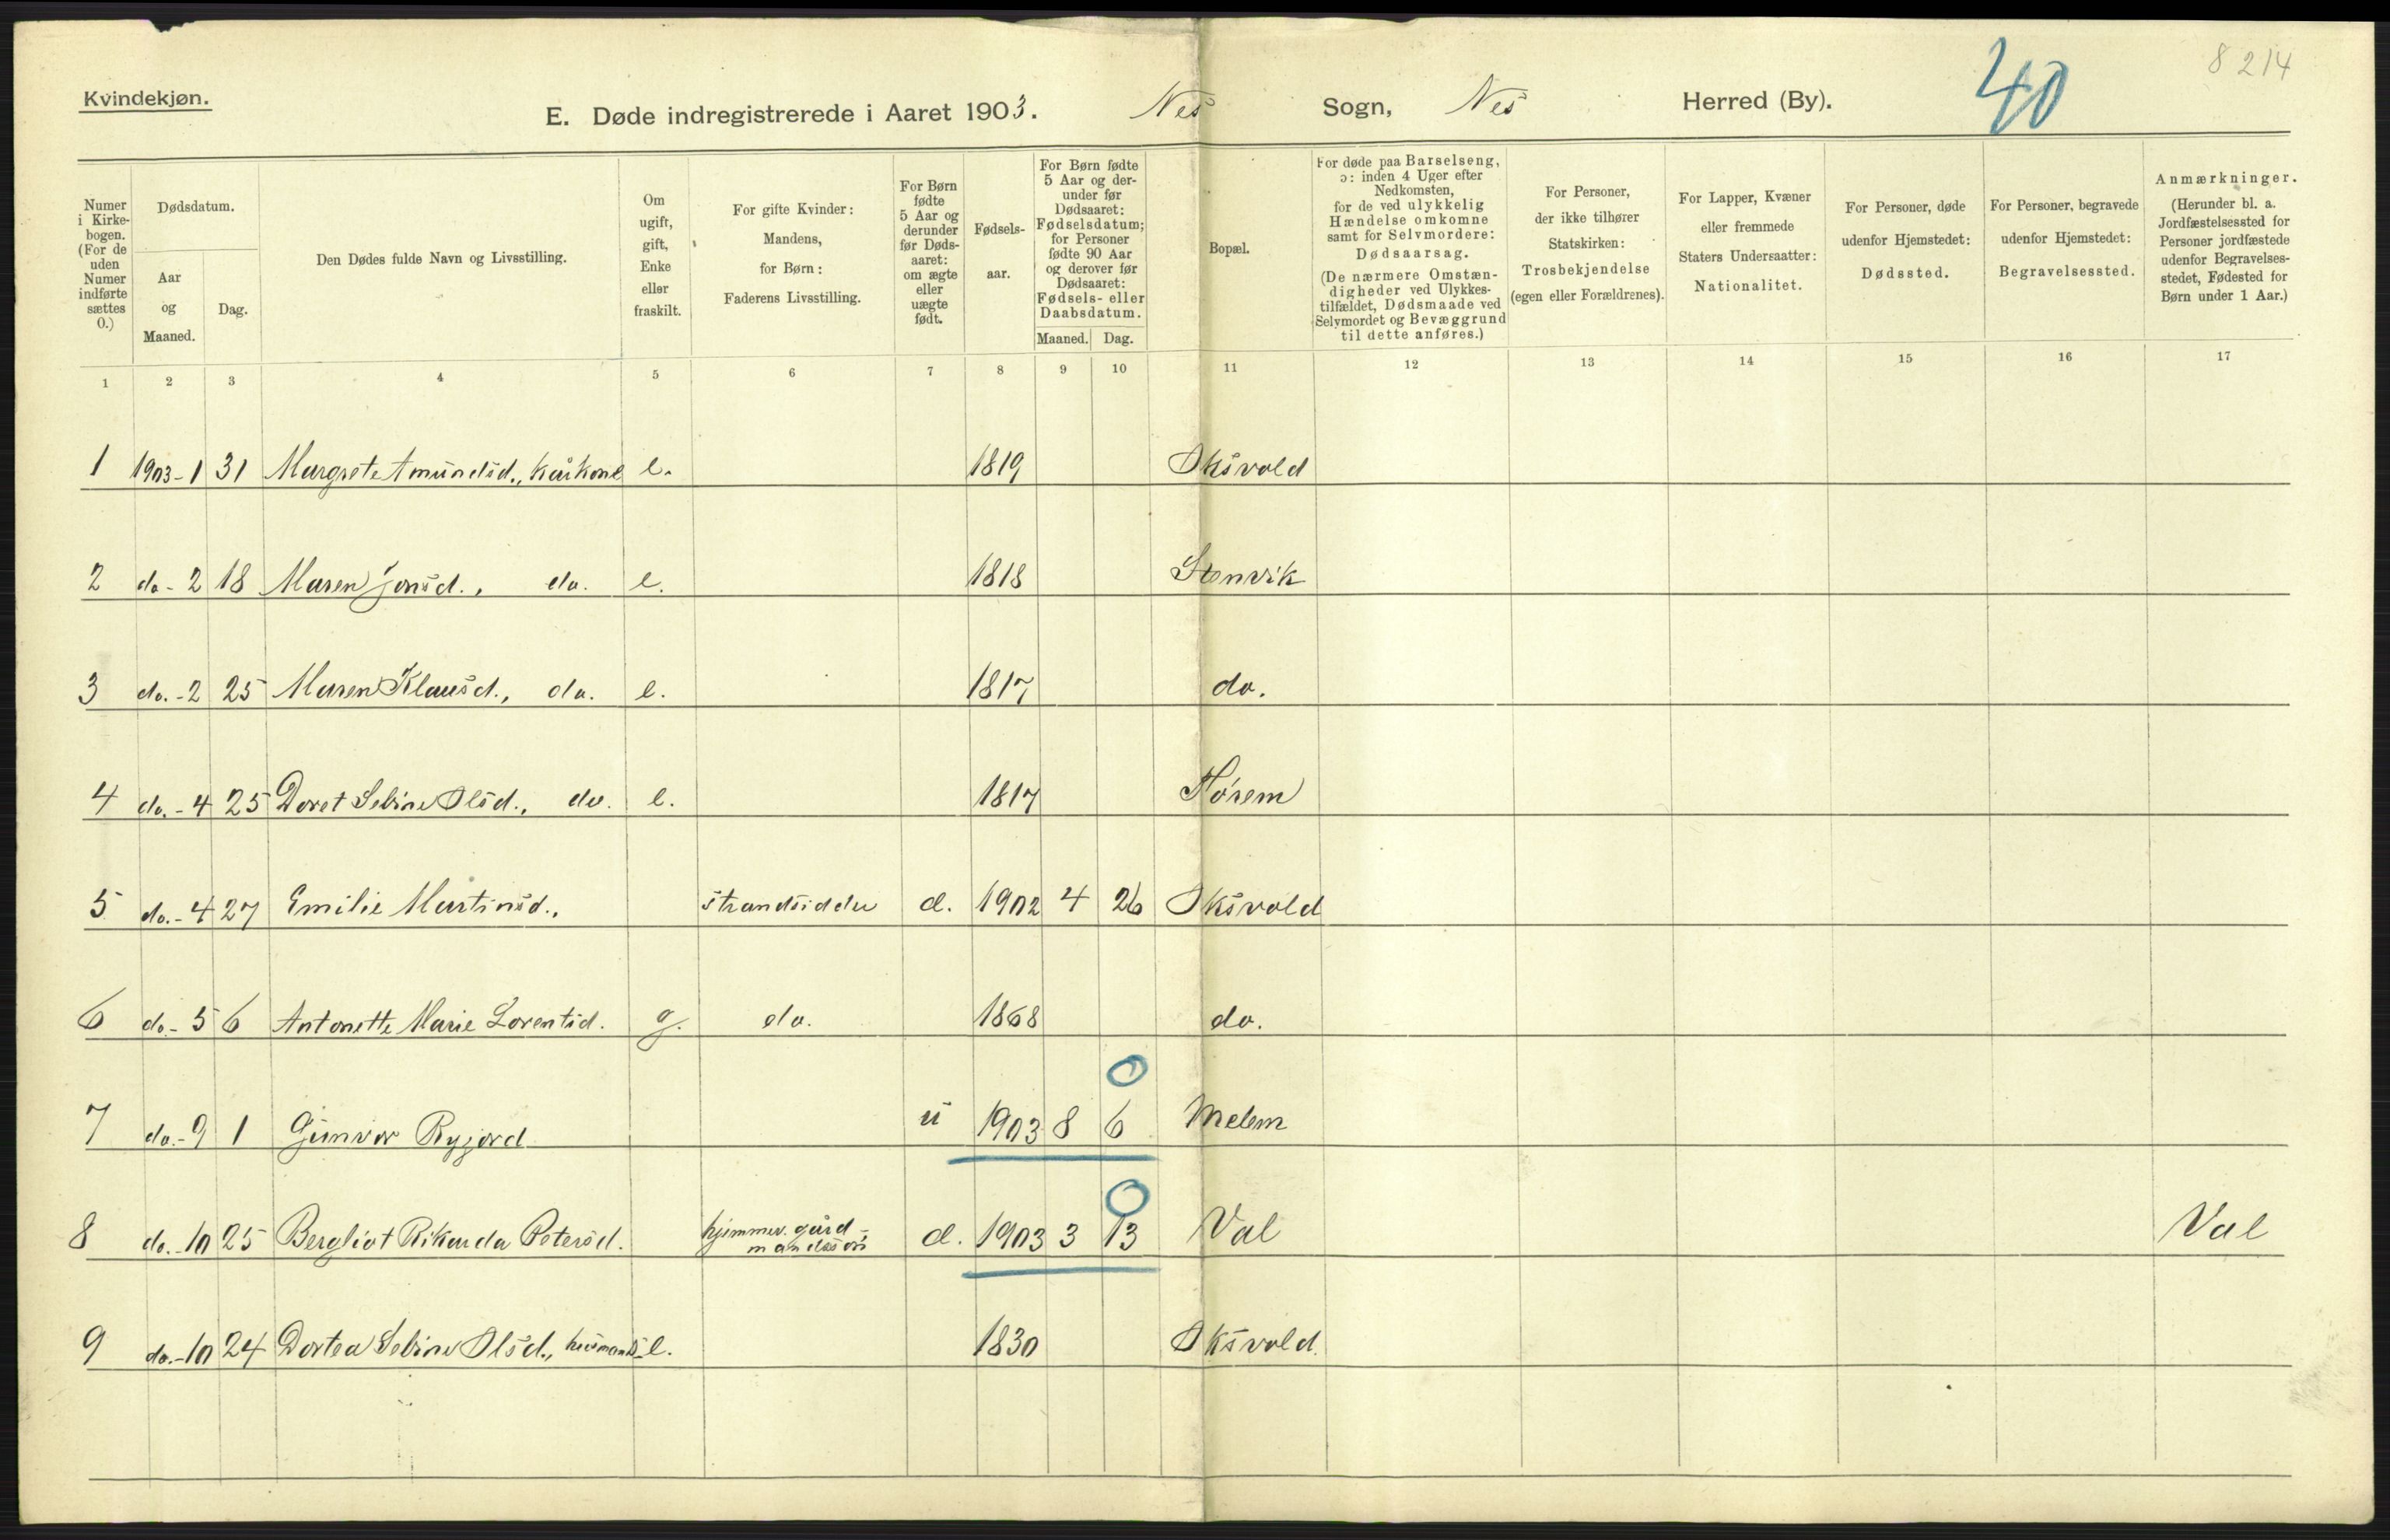 8 214
Kvindekjøn.
E. Døde indregistrerede i Aaret 1903. Nes Sogn, Nes Herred (By). 40
Numer i Kirke-bogen. (For de uden Numer indførte sættes 0.)
Dødsdatum.
Aar og Maaned.
Dag.
Den Dødes fulde Navn og Livsstilling.
Om ugift, gift, Enke eller fraskilt.
For gifte Kvinder: Mandens, for Børn: Faderens Livsstilling.
For Børn fødte 5 Aar og derunder før Døds-aaret: om ægte eller uægte født.
Fødsels-aar.
For Børn fødte 5 Aar og der-under før Dødsaaret: Fødselsdatum; for Personer fødte 90 Aar og derover før Dødsaaret: Fødsels- eller Daabsdatum.
Maaned. Dag.
Bopæl.
For døde paa Barselseng, ɔ: inden 4 Uger efter Nedkomsten, for de ved ulykkelig Hændelse omkomne samt for Selvmordere: Dødsaarsag. (De nærmere Omstæn-digheder ved Ulykkes-tilfældet, Dødsmaade ved Selvmordet og Bevæggrund til dette anføres.)
For Personer, der ikke tilhører Statskirken: Trosbekjendelse (egen eller Forældrenes).
For Lapper, Kvæner eller fremmede Staters Undersaatter: Nationalitet.
For Personer, døde udenfor Hjemstedet: Dødssted.
For Personer, begravede udenfor Hjemstedet: Begravelsessted.
Anmærkninger. (Herunder bl. a. Jordfæstelsessted for Personer jordfæstede udenfor Begravelses-stedet, Fødested for Børn under 1 Aar.)
1 2 3 4 5 6 7 8 9 10 11 12 13 14 15 16 17
1 1903-1 31 Margrete Amundsd., kårkone e. 1819 Oksvold
2 do-2 18 Maren Jonsd., do. e. 1818 Stenvik
3 do.-2 25 Maren Klausd., do. e. 1817 do.
4 do.-4 25 Doret Sebine Olsd., do. e. 1817 Hórem
5 do.-4 27 Emilie Martinsd., strandsidder d. 1902 4 26 Oksvold
6 do-5 6 Antonette Marie Lorentsd. g. do. 1868 do.
0
7 do.-9 1 Gunvor Rygjord u 1903 8 6 Melem
0
8 do.-10 25 Bergliot Rikarda Petersd. hjemmev. gård-
mandssøn d. 1903 3 13 Val Val
9 do.-10 24 Dortea Sebine Olsd., husmands e. 1830 Oksvold.